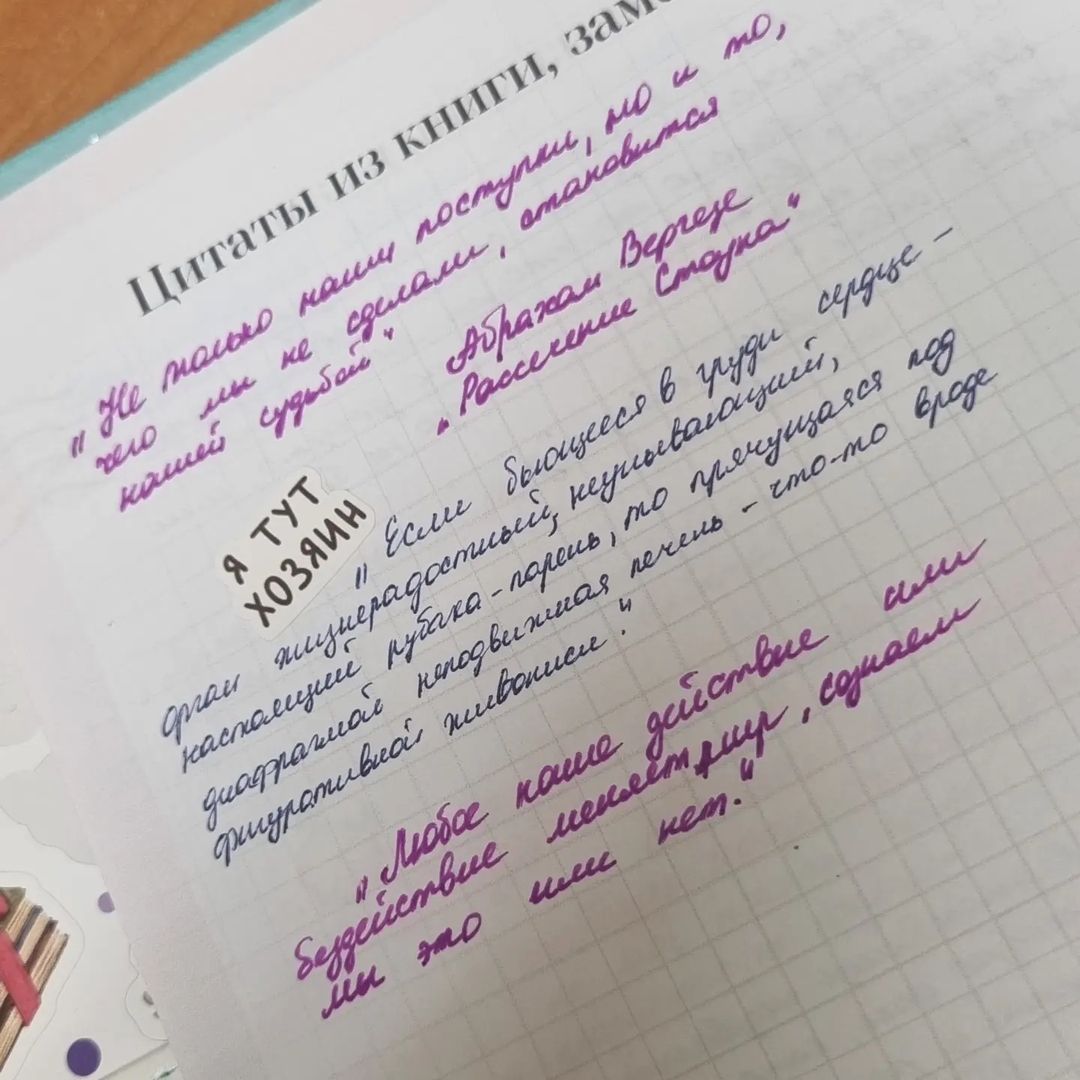 Цитаты из книги, заме
"Не только наши поступки, но и то,
чего мы не сделали, становится
нашей судьбой"
Абрахам Вергезе
"Рассечение Стоуна"
Я ТУТ
ХОЗЯИН
"Если бьющееся в груди сердце -
орган жизнерадостный, неунывающий,
настоящий рубаха-парень, то прячущаяся под
диафрагмой неподвижная печень - что-то вроде
фигуративной живописи."
"Любое наше действие или
бездействие меняет мир, сознаем
мы это или нет."